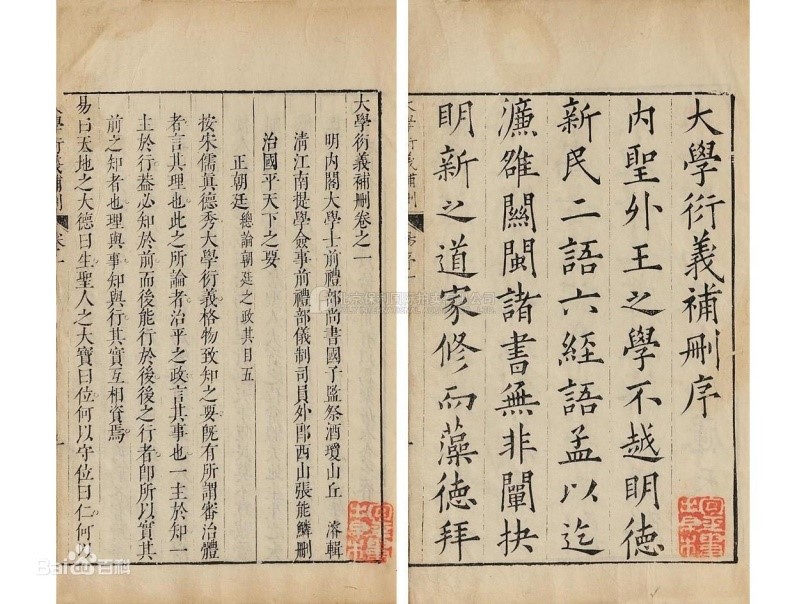 大學衍義補刪序
內聖外王之學不越明德
新民二語六經語孟以迄
濂雒關閩諸書無非闡抉
明新之道家修而藻德拜
大學衍義補刪卷之一
明內閣大學士前禮部尚書國子監祭酒瓊山丘 濬輯
清江南提學僉事前禮部儀制司員外郎西山張能鱗刪
治國平天下之要
正朝廷 總論朝廷之政其目五
按宋儒真德秀大學衍義格物致知之要既有所謂審治體
者言其理也此之所論者治平之政言其事也一主於知一
主於行葢必知於前而後能行於後後之行者即所以實其
前之知者也理與事知與行其實互相資焉
易曰天地之大德曰生聖人之大寶曰位何以守位曰仁何
Baidu百科